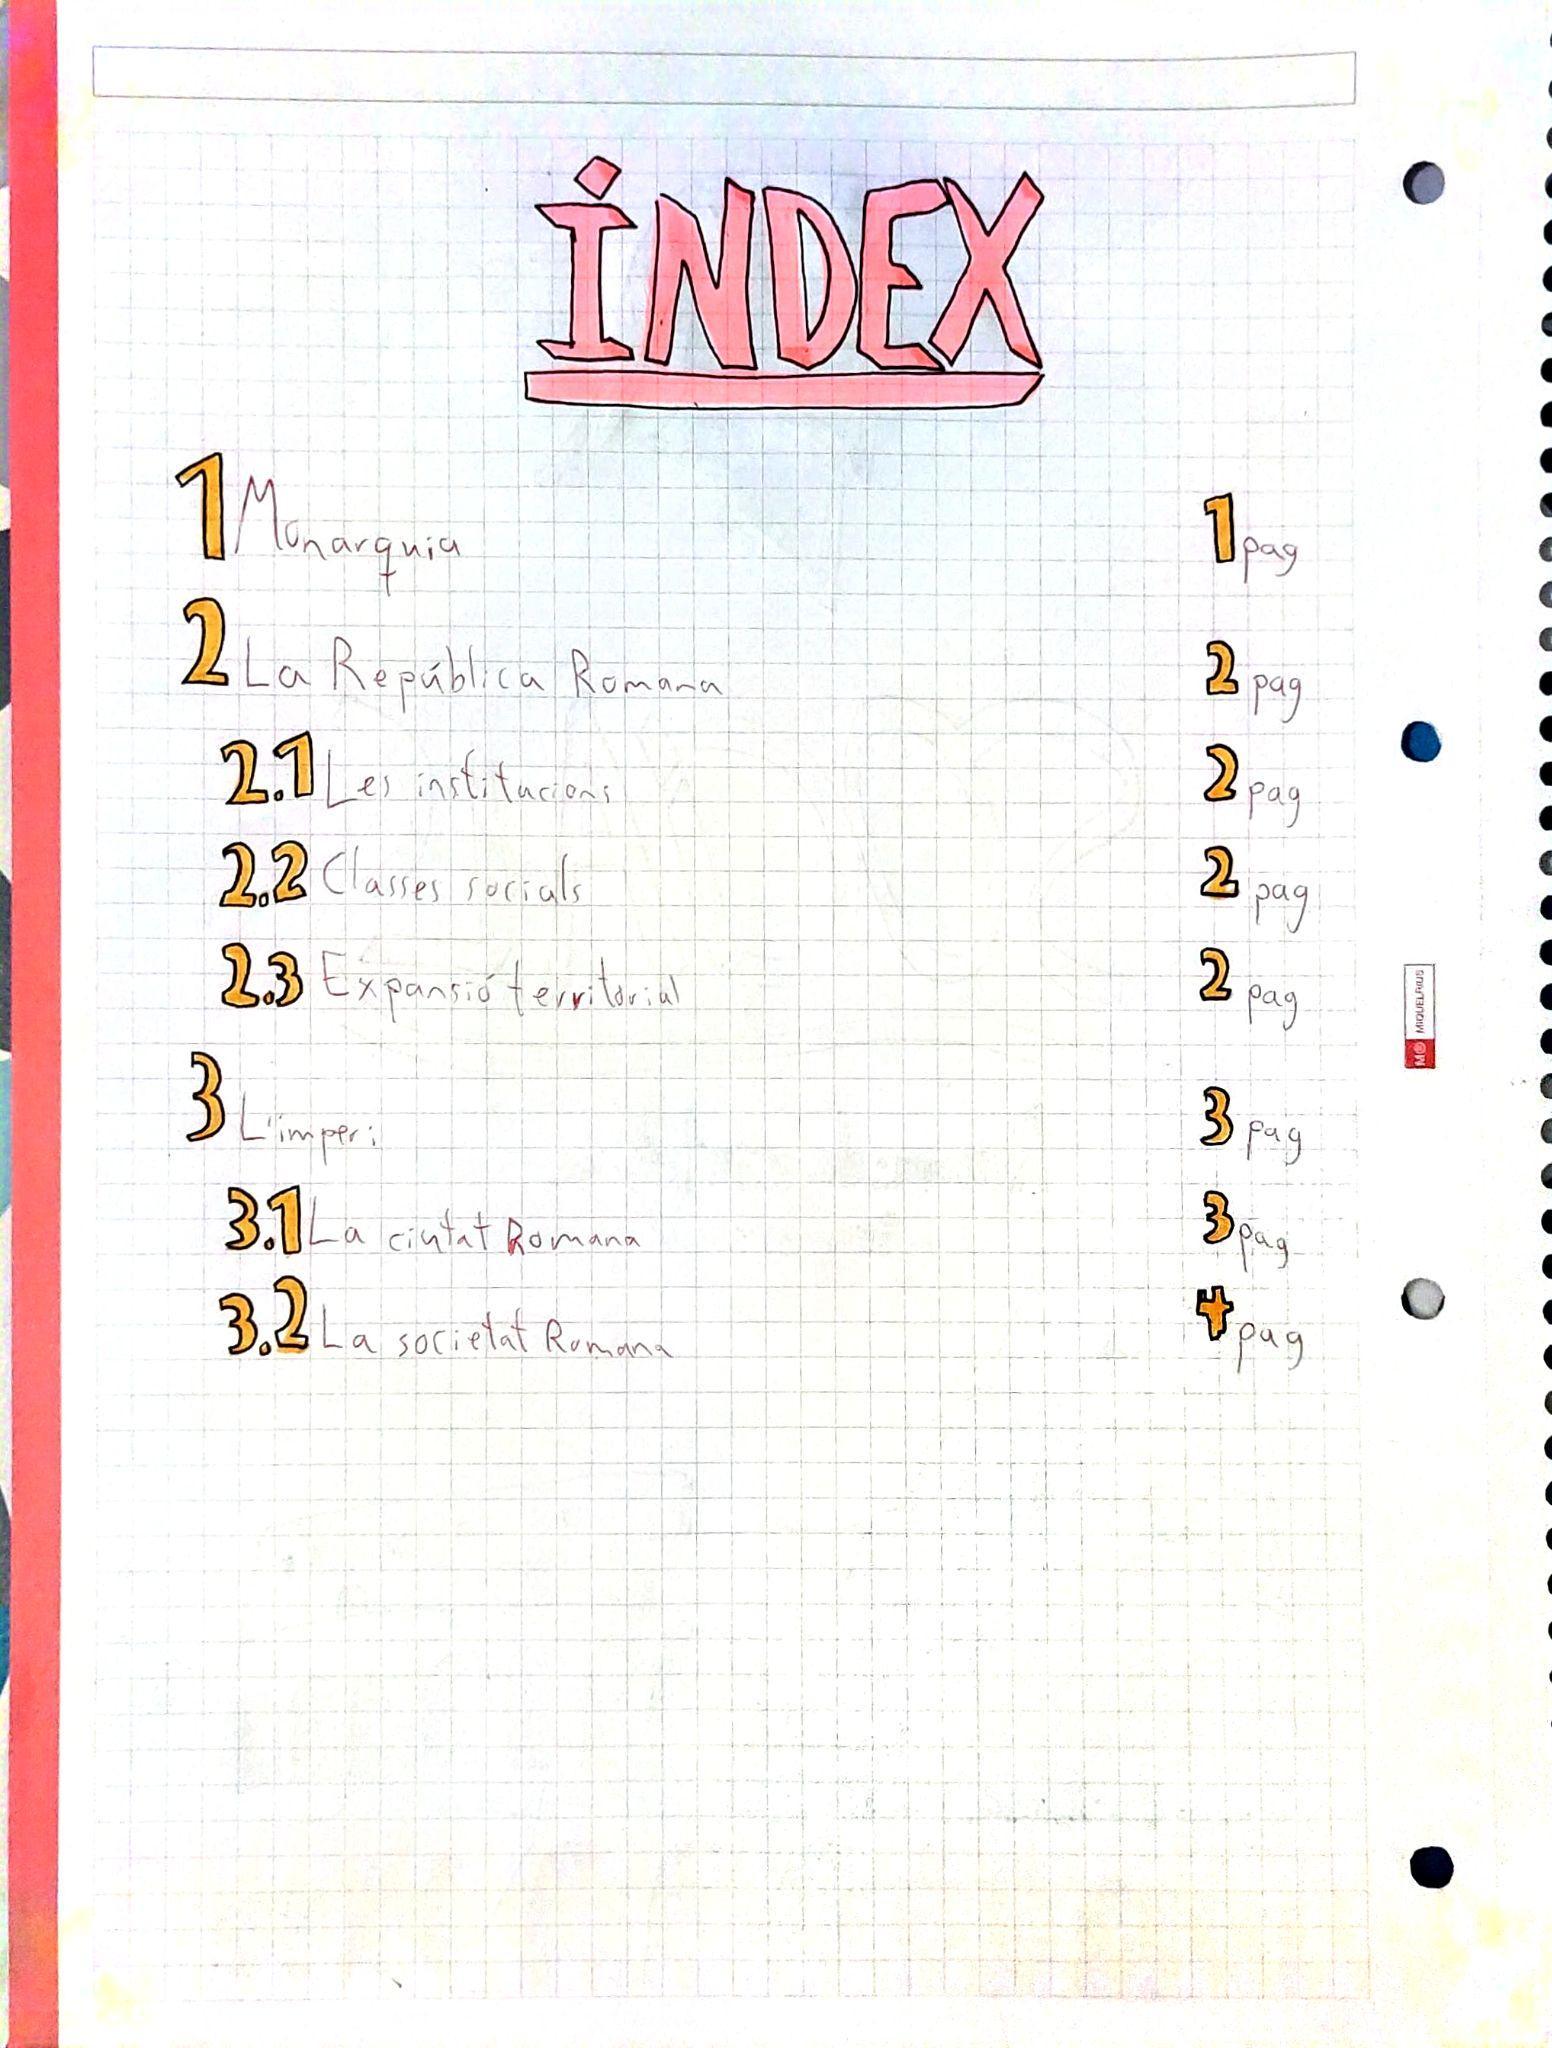 ÍNDEX
1 Monarquia 1 pag
2 La República Romana 2 pag
2.1 Les institucions 2 pag
2.2 Classes socials 2 pag
2.3 Expansió territorial 2 pag
3 L'imperi 3 pag
3.1 La ciutat Romana 3 pag
3.2 La societat Romana 4 pag
MIQUELRIUS